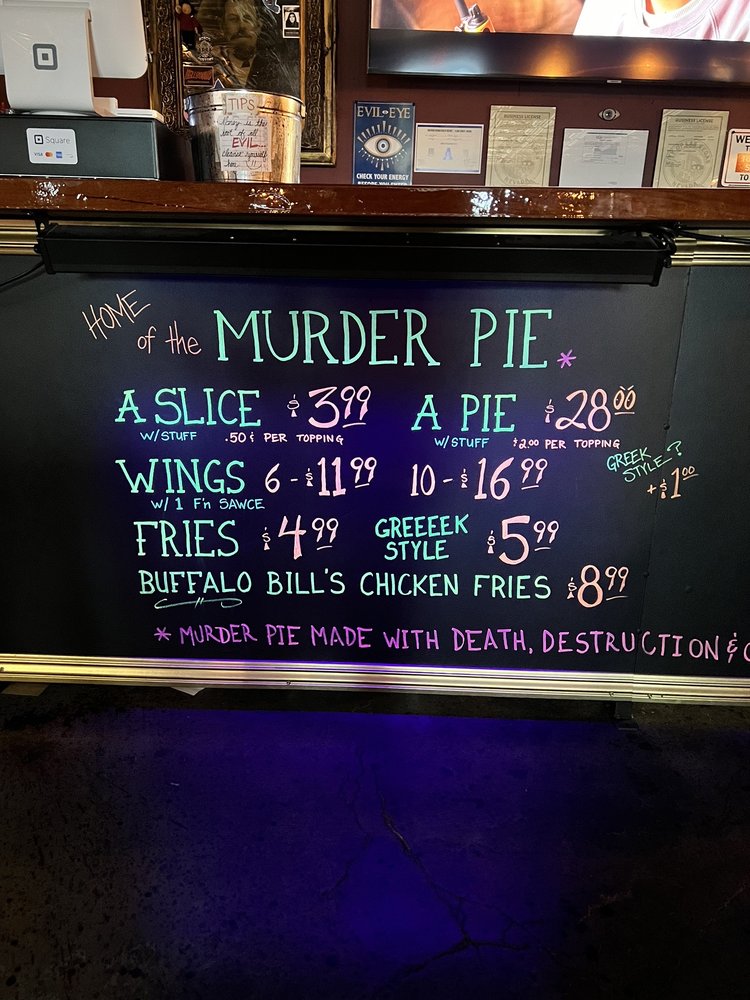 Square
VISA
TIPS
Money is the
root of all
EVIL...
cleanse yourself
here!!
EVIL EYE
CHECK YOUR ENERGY
BEFORE YOU ENTER
A
BUSINESS LICENSE
BUSINESS LICENSE
WE
TO
HOME of the MURDER PIE *
A SLICE $3.99 A PIE $28.00
W/STUFF .50¢ PER TOPPING W/STUFF $2.00 PER TOPPING
GREEK STYLE? +$1.00
WINGS 6 - $11.99 10 - $16.99
W/ 1 F'n SAWCE
FRIES $4.99 GREEEEK STYLE $5.99
BUFFALO BILL'S CHICKEN FRIES $8.99
* MURDER PIE MADE WITH DEATH, DESTRUCTION &